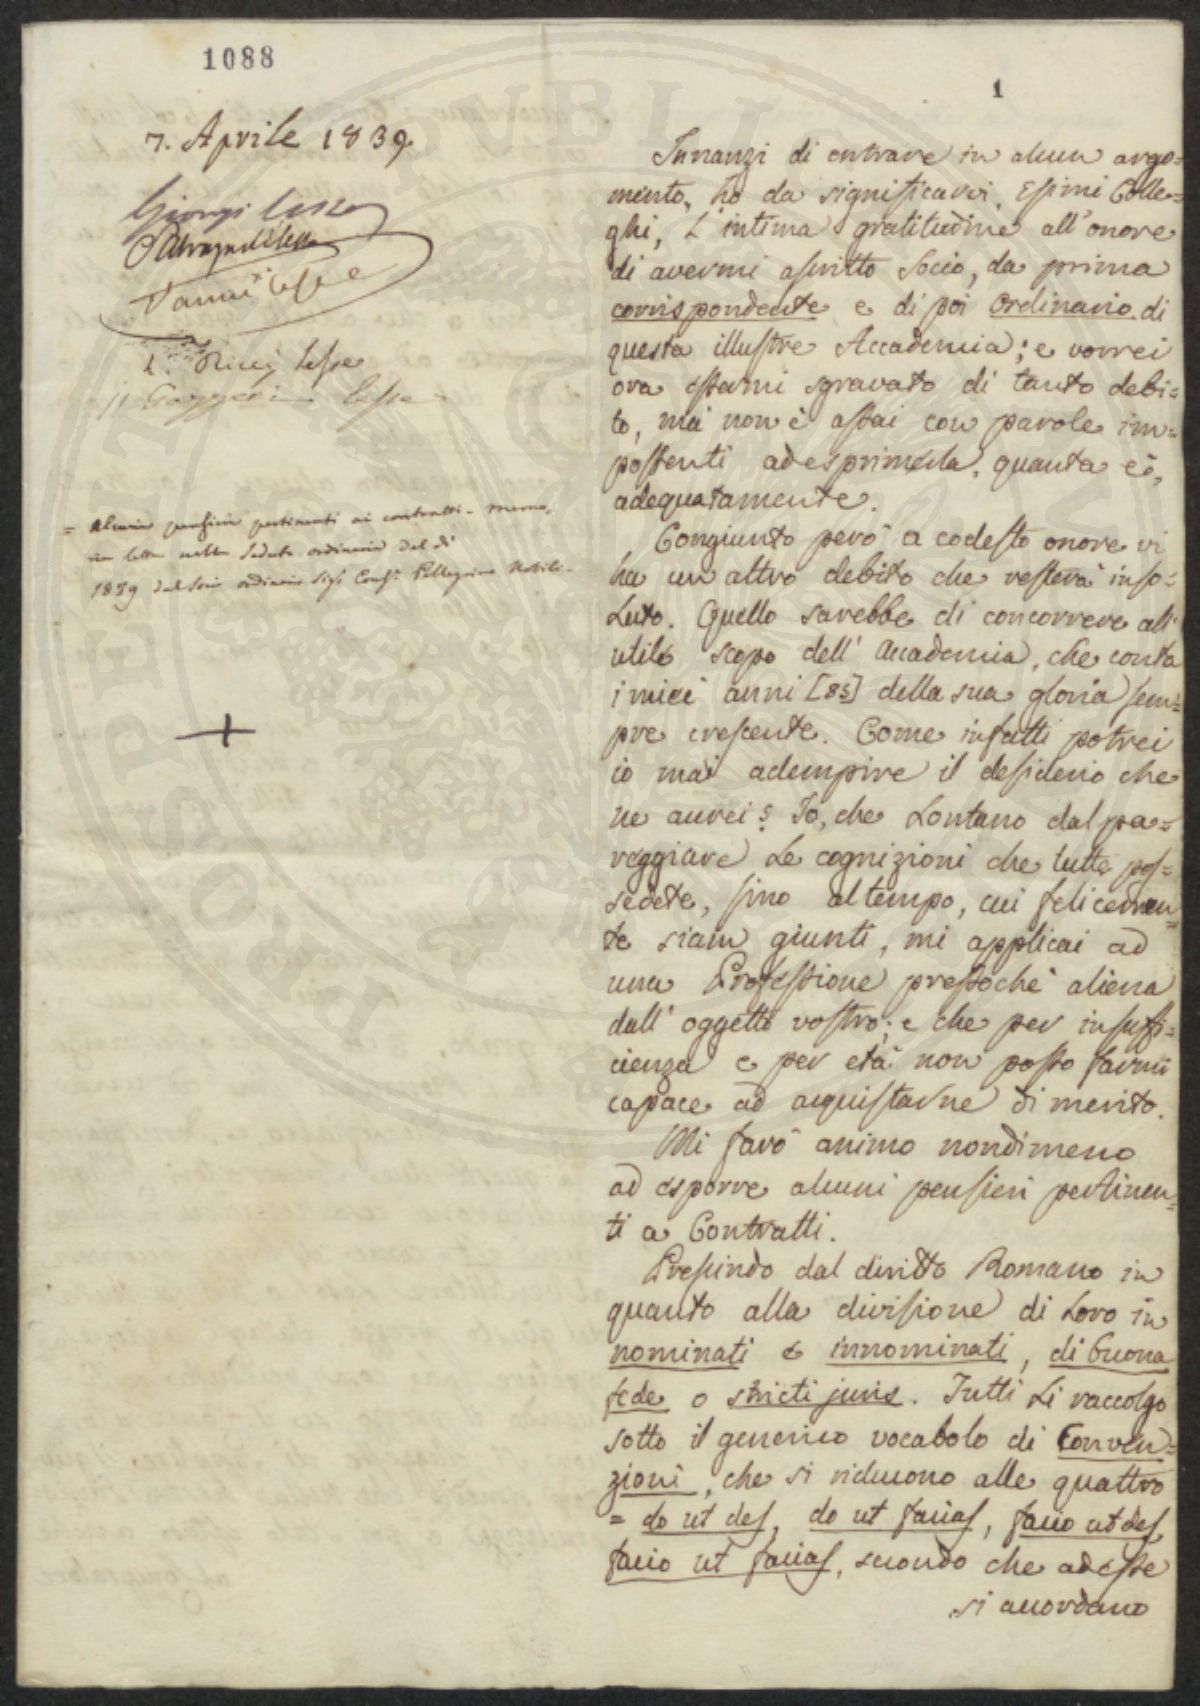 1088
1
7. Aprile 1839
Giorgi Lesse
Lesse
L. Ricci Lesse
Gazzeri Lesse
= Alcuni pensieri pertinenti ai contratti - Memo-
ria letta nella Seduta ordinaria del dì
1839 dal Socio ordinario Sigr Consr Pellegrino Nobili -
Innanzi di entrare in alcun argo=
mento, ho da significarvi, Esimi Colle=
ghi, L'intima gratitudine all'onore
di avermi ascritto Socio, da prima
corrispondente e di poi Ordinario di
questa illustre Accademia; e vorrei
ora essermi sgravato di tanto debi=
to, ma non è assai con parole im=
possenti ad esprimerla, quanta è,
adequatamente.
Congiunto però a codesto onore vi
ha un altro debito che resterà inso=
luto. Quello sarebbe di concorrere all'
utile scopo dell' Accademia, che conta
i miei anni [85] della sua gloria sem=
pre crescente. Come infatti potrei
io mai adempire il desiderio che
ne aurei? Io, che Lontano dal pa=
reggiare Le cognizioni che tutte pos=
sedete, sino al tempo, cui felicemen=
te siam giunti, mi applicai ad
una Professione pressochè aliena
dall' oggetto vostro; e che per insuffi=
cienza e per età non posso farmi
capace ad acquistarne di merito.
Mi farò animo nondimeno
ad esporre alcuni pensieri pertinen=
ti a Contratti.
Prescindo dal diritto Romano in
quanto alla divisione di Loro in
nominati e innominati, di buona
fede o stricti juris. Tutti Li raccolgo
sotto il generico vocabolo di Conven=
zioni, che si riducono alle quattro
= do ut des, do ut facias, facio ut des,
facio ut facias, secondo che ad esse
si accordano